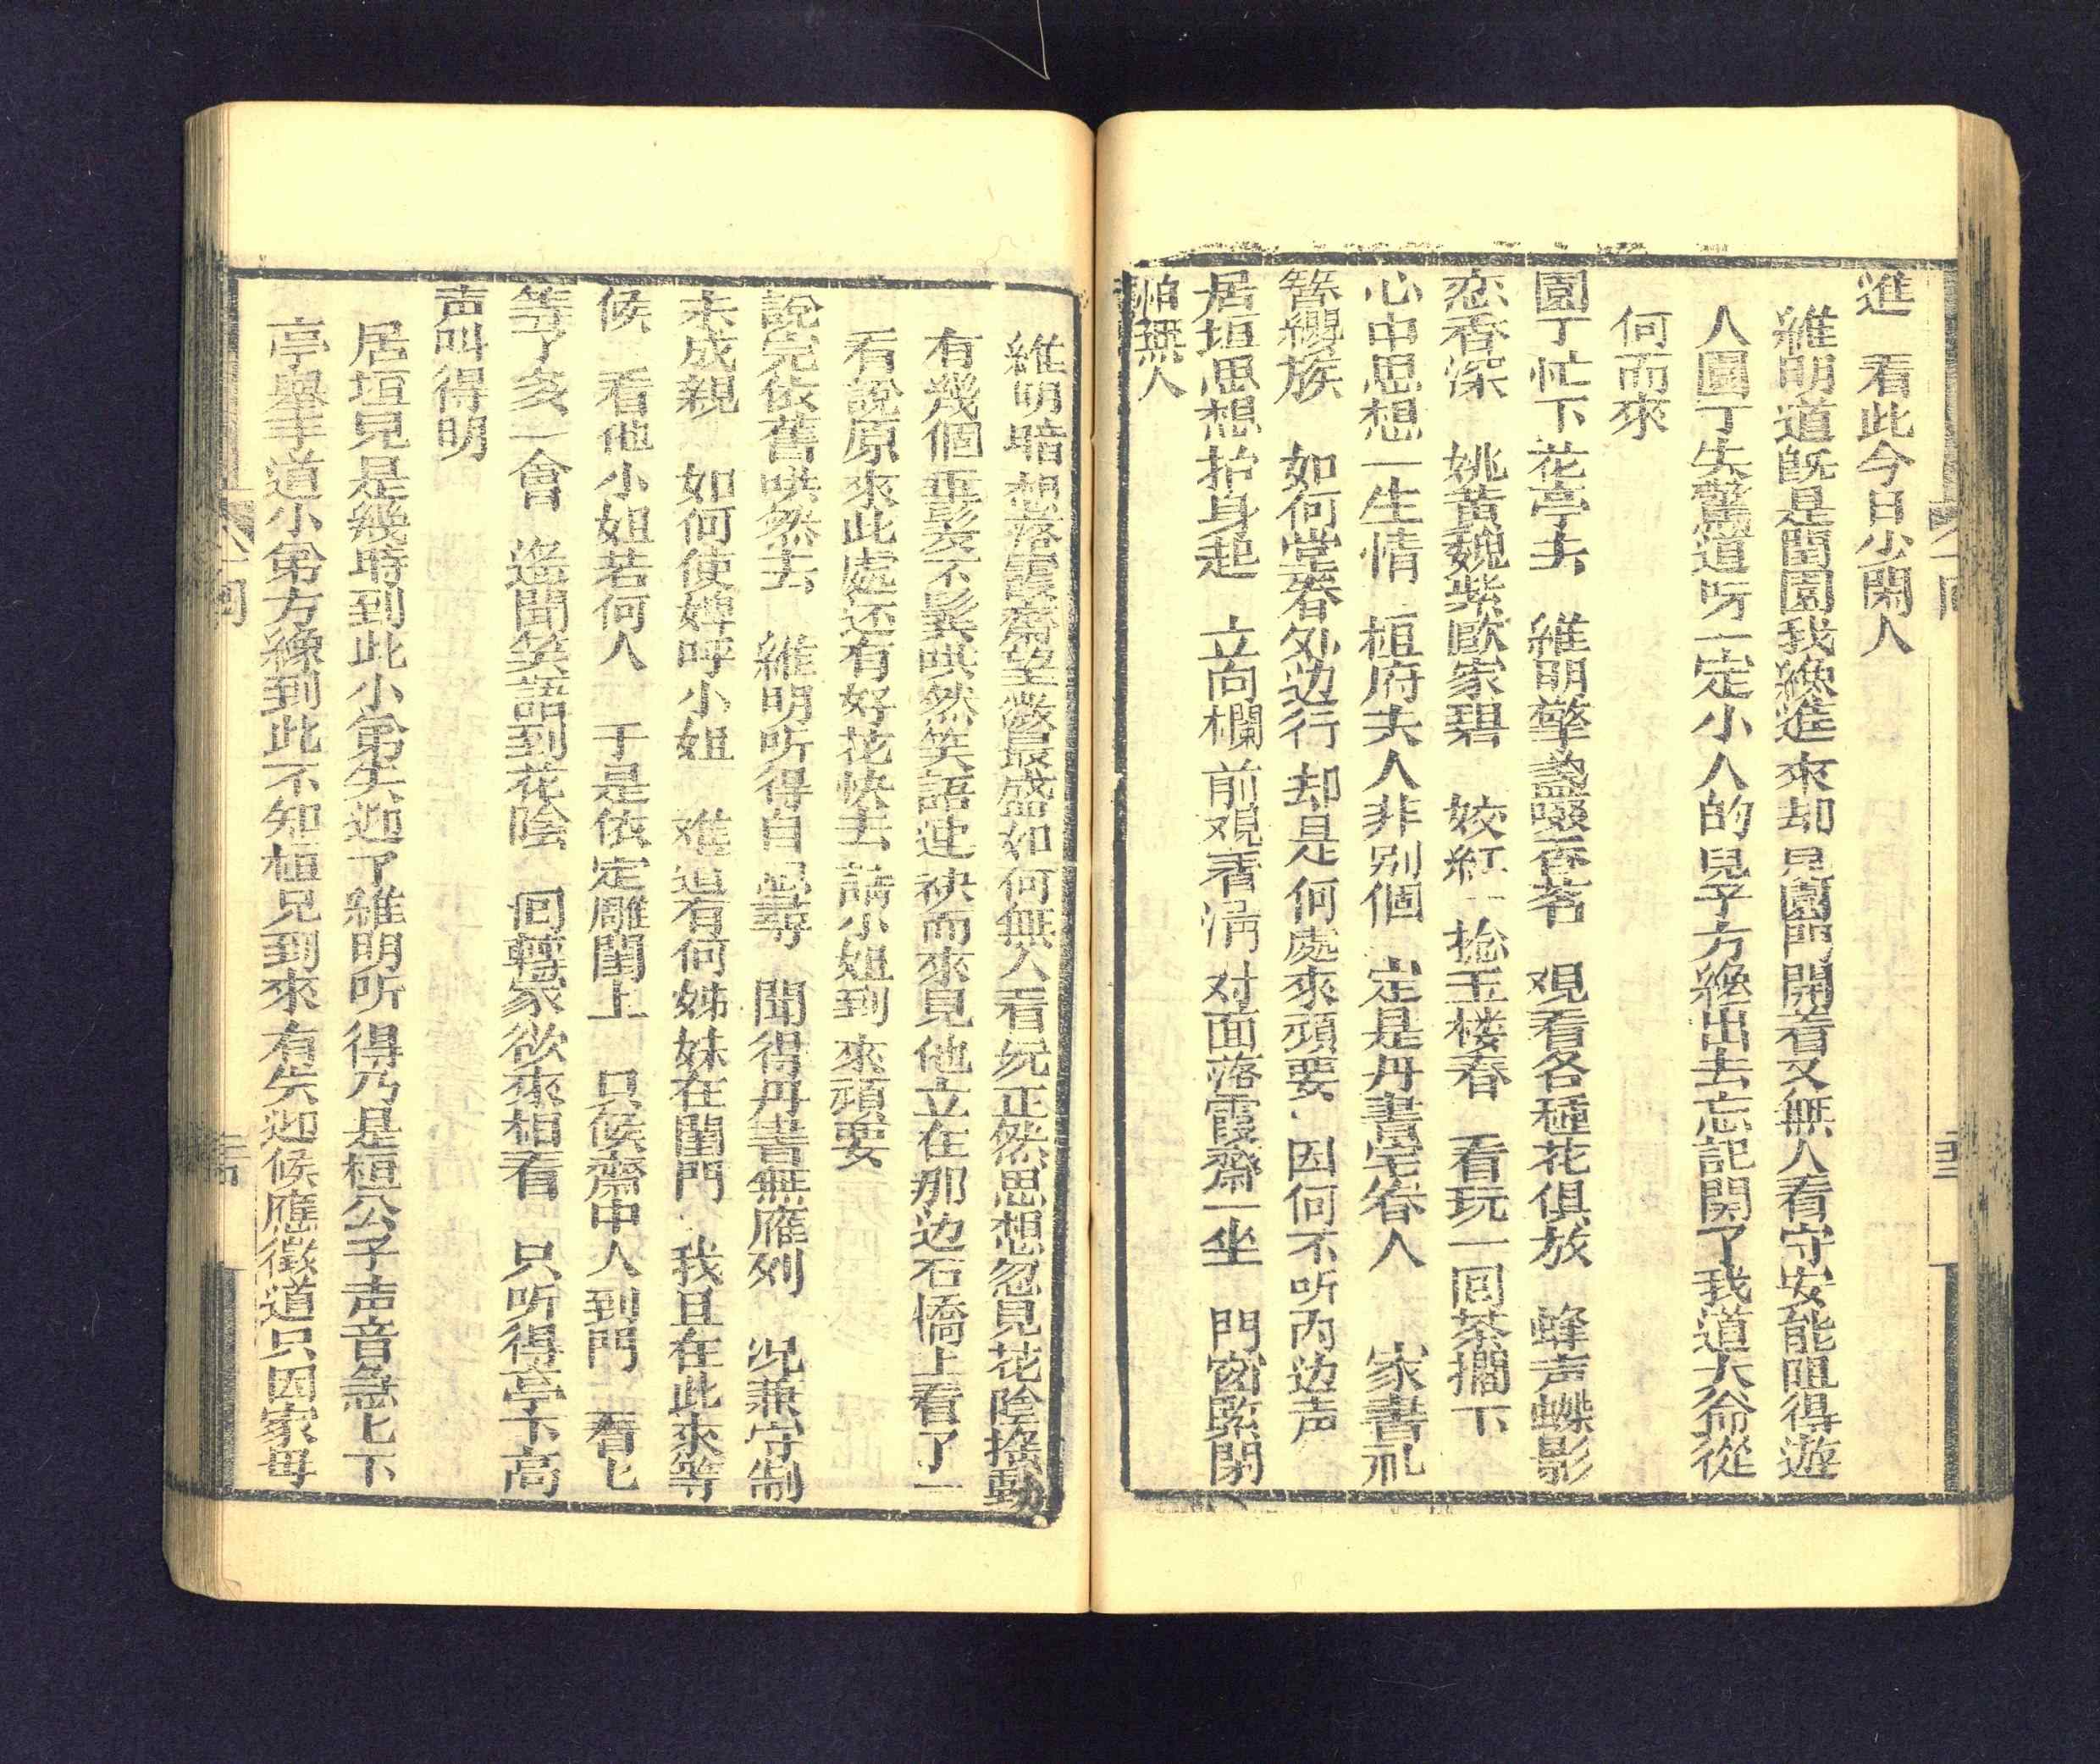 進　看此今日少閑人
維明道既是閑園我纔進來却見園門開着又無人看守安能阻得遊
人園丁失驚道呀一定小人的兒子方纔出去忘記関了我道大爺從
何而來
園丁忙下花亭去　維明擎盞啜香茗　观看各種花俱放　蜂声蝶影
恋香深　姚黄魏紫歐家碧　姣紅一捻玉楼春　看玩一回茶擱下
心中思想一生情　桓府夫人非别個　定是丹書宅眷人　家書礼
簪纓族　如何堂眷外边行　却是何處來頑耍　因何不听内边声
居垣思想抬身起　立向欄前观看清　对面落霞齋一坐　門窗緊閉
怕無人
維明暗想落霞齋薔薇最盛如何無人看玩正然思想忽見花陰摇動
有幾個垂髮丫鬟哄然笑語連袂而來見他立在那边石橋上看了一
看說原來此處还有好花快去請小姐到來頑耍
說完依舊哄然去　維明听得自思尋　聞得丹書無雁列　况兼守制
未成親　如何使婢呼小姐　难道有何姊妹在閨門　我且在此來等
候　看他小姐若何人　于是依定雕闌上　只候齋中人到門　看匕
等了多一會　遙聞笑語到花陰　回轉家欲來相看　只听得亭下高
声叫得明
居垣兄是幾時到此小弟失迎了維明听得乃是桓公子声音急匕下
亭舉手道小弟方纔到此不知桓兄到來有失迎候應徵道只因家母